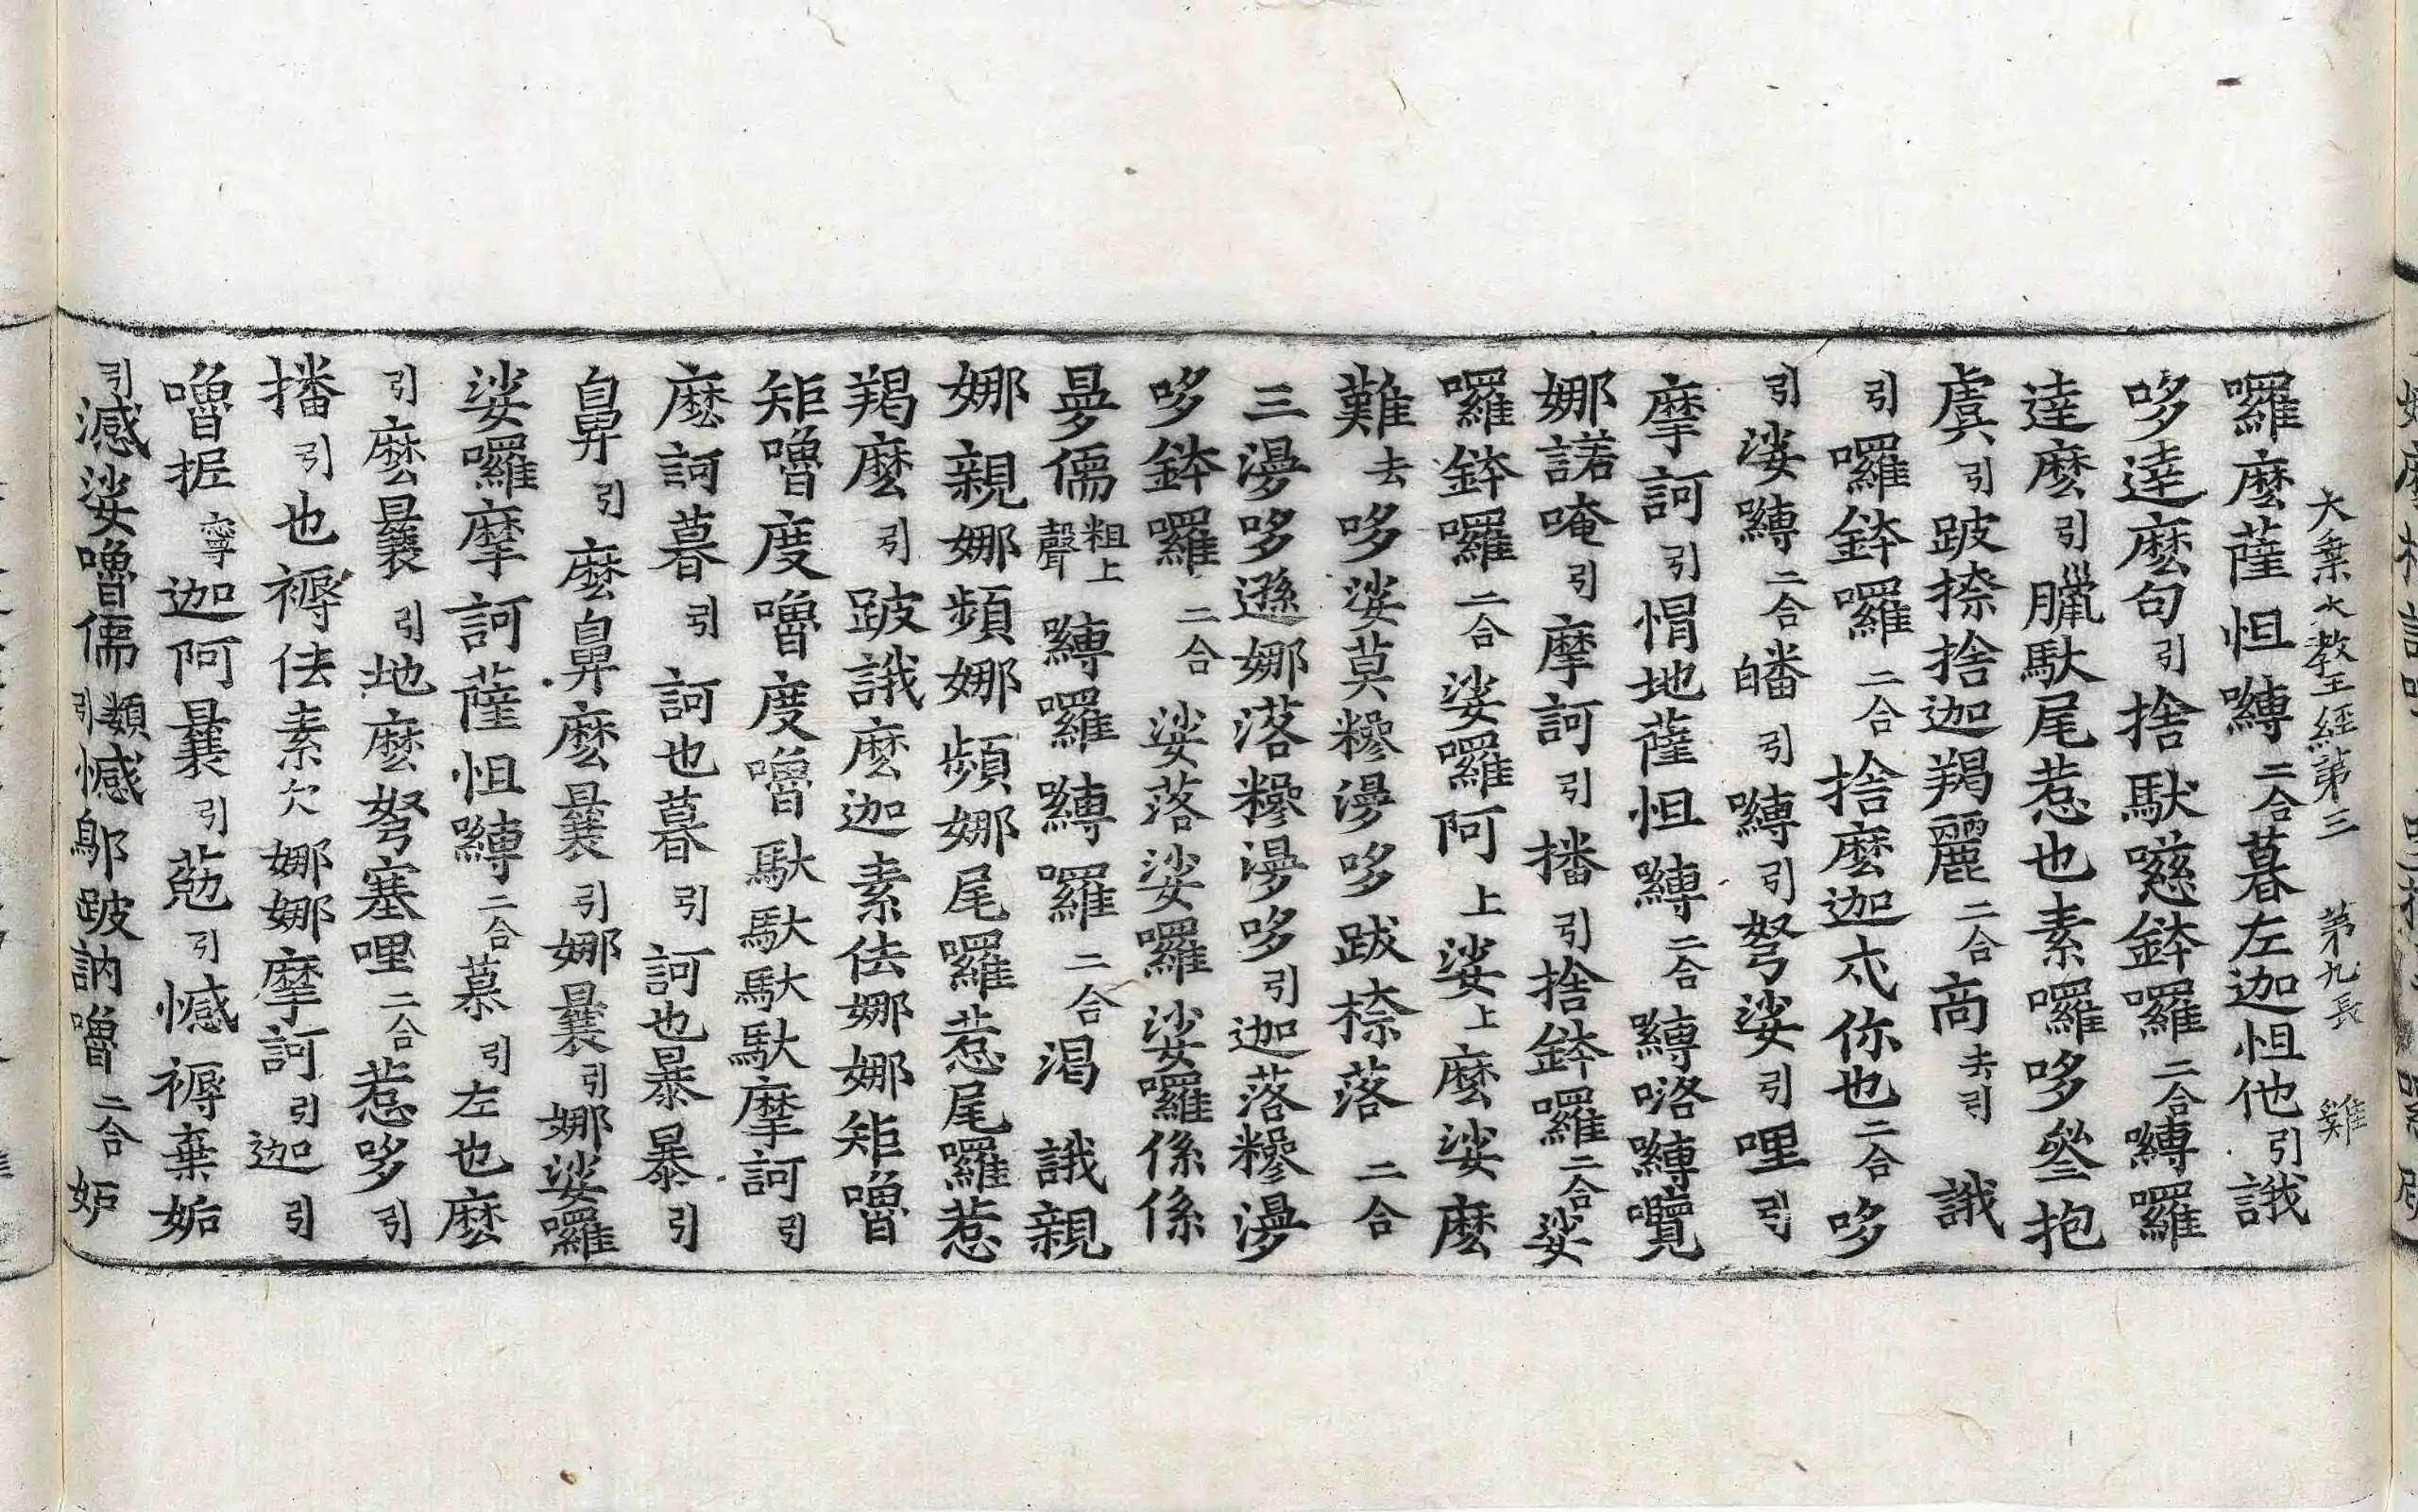 大乗大教王經第三 第九長 雞
囉麼薩怛嚩二合暮左迦怛他引誐
哆達麼句引捨馱㘂鉢囉二合嚩囉
達麼引臘馱尾惹也素囉哆叅抱
虞引跛捺捨迦羯麗二合商去引誐
引囉鉢囉二合捨麼迦忒你也二合哆
引娑嚩二合皤引嚩引弩娑引哩引
摩訶引㥜地薩怛嚩二合嚩咯嚩囕
娜諾唵引摩訶引播引捨鉢囉二合娑
囉鉢囉二合娑囉阿上娑上麼娑麼
難去哆娑莫糝漫哆跋㮈落二合
三漫哆遜娜落糝漫哆引迦落糝漫
哆鉢囉二合娑落娑囉娑囉係係
㬅儒粗上聲嚩囉嚩囉二合渴誐親
娜親娜頻娜頻娜尾囉惹尾囉惹
羯麼引跛誐麼迦素佉娜娜矩嚕
矩嚕度嚕度嚕馱馱馱馱摩訶引
麼訶暮引訶也暮引訶也暴暴引
鼻引麼鼻麼曩引娜曩引娜娑囉
娑囉摩訶薩怛嚩二合慕引左也麼
引麼曩引地麼弩塞哩二合惹哆引
播引也褥佉素欠娜娜摩訶引迦引
嚕抳寧迦阿曩引㔟引憾褥棄妬
引憾娑嚕儒引類憾鄔跛訥嚕二合妒